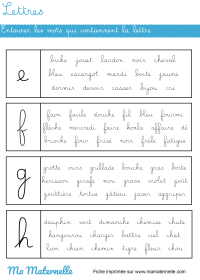 Lettres
Entourer les mots qui contiennent la lettre.
e
biche jouet lardon noir cheval
bleu escargot mardi boite jaune
dormir devoir casser bijou cri
f
faon facile douche fil bleu fourmi
flèche mercredi faire koala affaire de
bronche four frise noir frêle fatigue
g
grotte mars grillade bouche gras boite
hérisson girafe mou grave violet goût
gouttière tortue gâteau passer aggriper
h
dauphin vert dimanche chemise chute
kangourou charger battre ciel chat
lion chien chemin tigre fleur chou
Ma Maternelle
Fiche imprimée sur www.mamaternelle.com